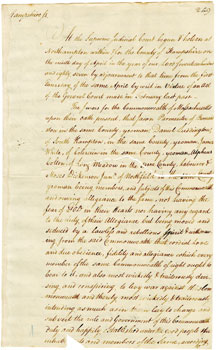 Hampshire ss
At the Supreme Judicial Court begun & holden at
Northampton within & for the County of Hampshire on
the ninth day of April in the year of our Lord
by adjournment to that time from the first
Tuesday of the same April by virtue of an Act
of the General Court made in February last past
The Jurors for the Commonwealth of Massachusetts
upon their oath present that Jason Parmenter of
in the same County yeoman Daniel Luddington
of South Hampton in the same County yeoman James
White of Colerain in the same County yeoman Alpheus
Colton of Long Meadow in the same County labourer &
Moses Dickinson of Northfield
yeoman being members and subjects of the Commonwealth
and owing allegiance to the same, not having the
fear of God in their hearts nor having any regard
to the duty of their allegiance but being moved and
seduced by a lewd and rebellious Spirit & withdrawing
from the said Commonwealth that cordial Love
and due obedience, fidelity and allegiance which every
member of the same Commonwealth of right ought to
bear to it, and also most wickedly & traiterously devising
and conspiring to levy war against the
Commonwealth and thereby most wickedly & traiterously
intending as much as in them lay to change and
subvert the rule and Government of this Commonwealth
duly and happily established under the good people the
inhabitants and members of the same